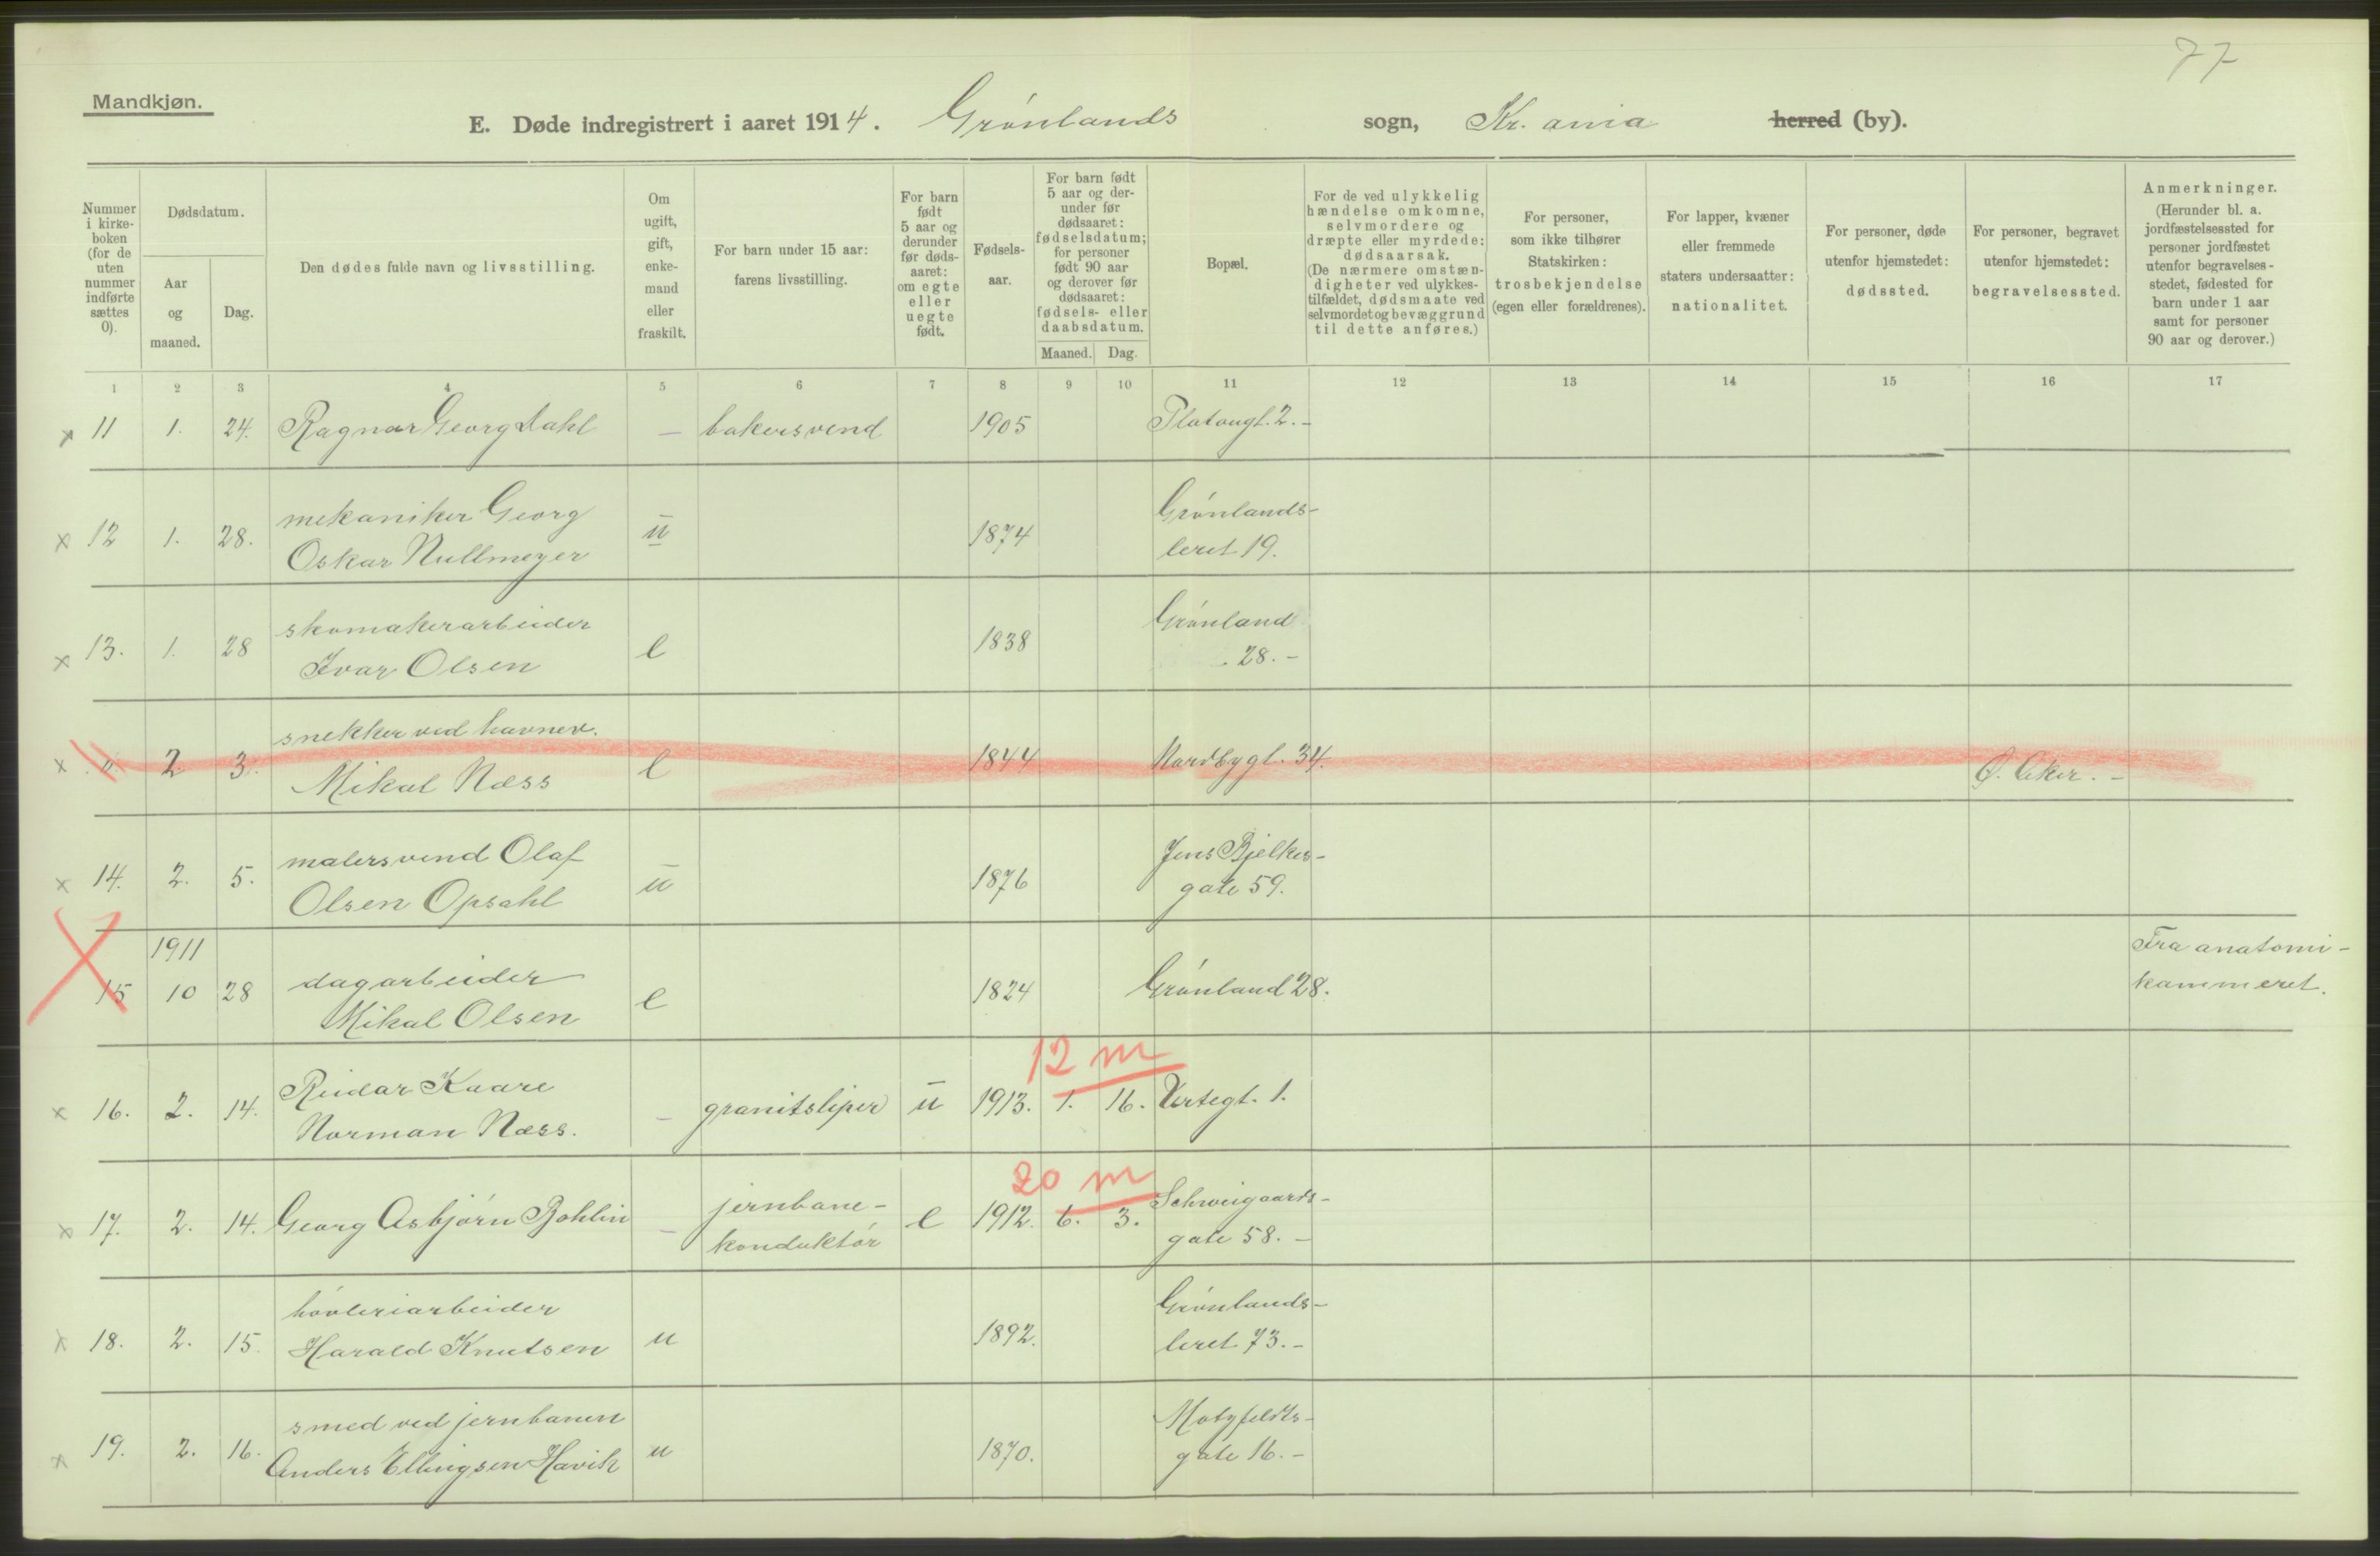 77
Mandkjøn.
E. Døde indregistrert i aaret 1914. Grønlands sogn, Kr. ania herred (by).
Nummer i kirkeboken (for de uten nummer indførte sættes 0).
Dødsdatum.
Aar og maaned.
Dag.
Den dødes fulde navn og livsstilling.
Om ugift, gift, enkemand eller fraskilt.
For barn under 15 aar: farens livsstilling.
For barn født 5 aar og derunder før dødsaaret: om egte eller uegte født.
Fødselsaar.
For barn født 5 aar og derunder før dødsaaret: fødselsdatum; for personer født 90 aar og derover før dødsaaret: fødsels- eller daabsdatum.
Maaned. Dag.
Bopæl.
For de ved ulykkelig hændelse omkomne, selvmordere og dræpte eller myrdede: dødsaarsak. (De nærmere omstændigheter ved ulykkestilfældet, dødsmaate ved selvmordet og bevæggrund til dette anføres.)
For personer, som ikke tilhører Statskirken: trosbekjendelse (egen eller forældrenes).
For lapper, kvæner eller fremmede staters undersaatter: nationalitet.
For personer, døde utenfor hjemstedet: dødssted.
For personer, begravet utenfor hjemstedet: begravelsessted.
Anmerkninger. (Herunder bl. a. jordfæstelsessted for personer jordfæstet utenfor begravelsesstedet, fødested for barn under 1 aar samt for personer 90 aar og derover.)
1 2 3 4 5 6 7 8 9 10 11 12 13 14 15 16 17
x 11 1. 24. Ragnar Georg Dahl — bakersvend 1905 Platougt. 2. -
x 12 1. 28. mekaniker Georg Oskar Nullmeyer u 1874 Grønlands-leret 19.
x 13. 1. 28 skomakerarbeider Ivar Olsen e 1838 Grønland 28. -
x " 2. 3. snekker ved havnev. Mikal Næss e 1844 Nordbygt. 34. Ø. Aker. -
x 14. 2. 5. malersvend Olaf Olsen Opsahl u 1876 Jens Bjelkes-gate 59.
X 15 1911 10 28 dagarbeider Mikal Olsen e 1824 Grønland 28. Fra anatomi-kammeret.
12 m
x 16. 2. 14. Reidar Kaare Norman Næss. — granitsliper u 1913. 1. 16. Urtegt. 1.
20 m
x 17. 2. 14. Georg Asbjørn Bohlin — jernbane-konduktør e 1912. 6. 3. Schweigaards-gate 58. -
x 18. 2. 15. høvleriarbeider Harald Knutsen u 1892. Grønlands-leret 73. -
x 19. 2. 16. smed ved jernbanen Anders Ellingsen Havik u 1870. Motzfeldts-gate 16. -